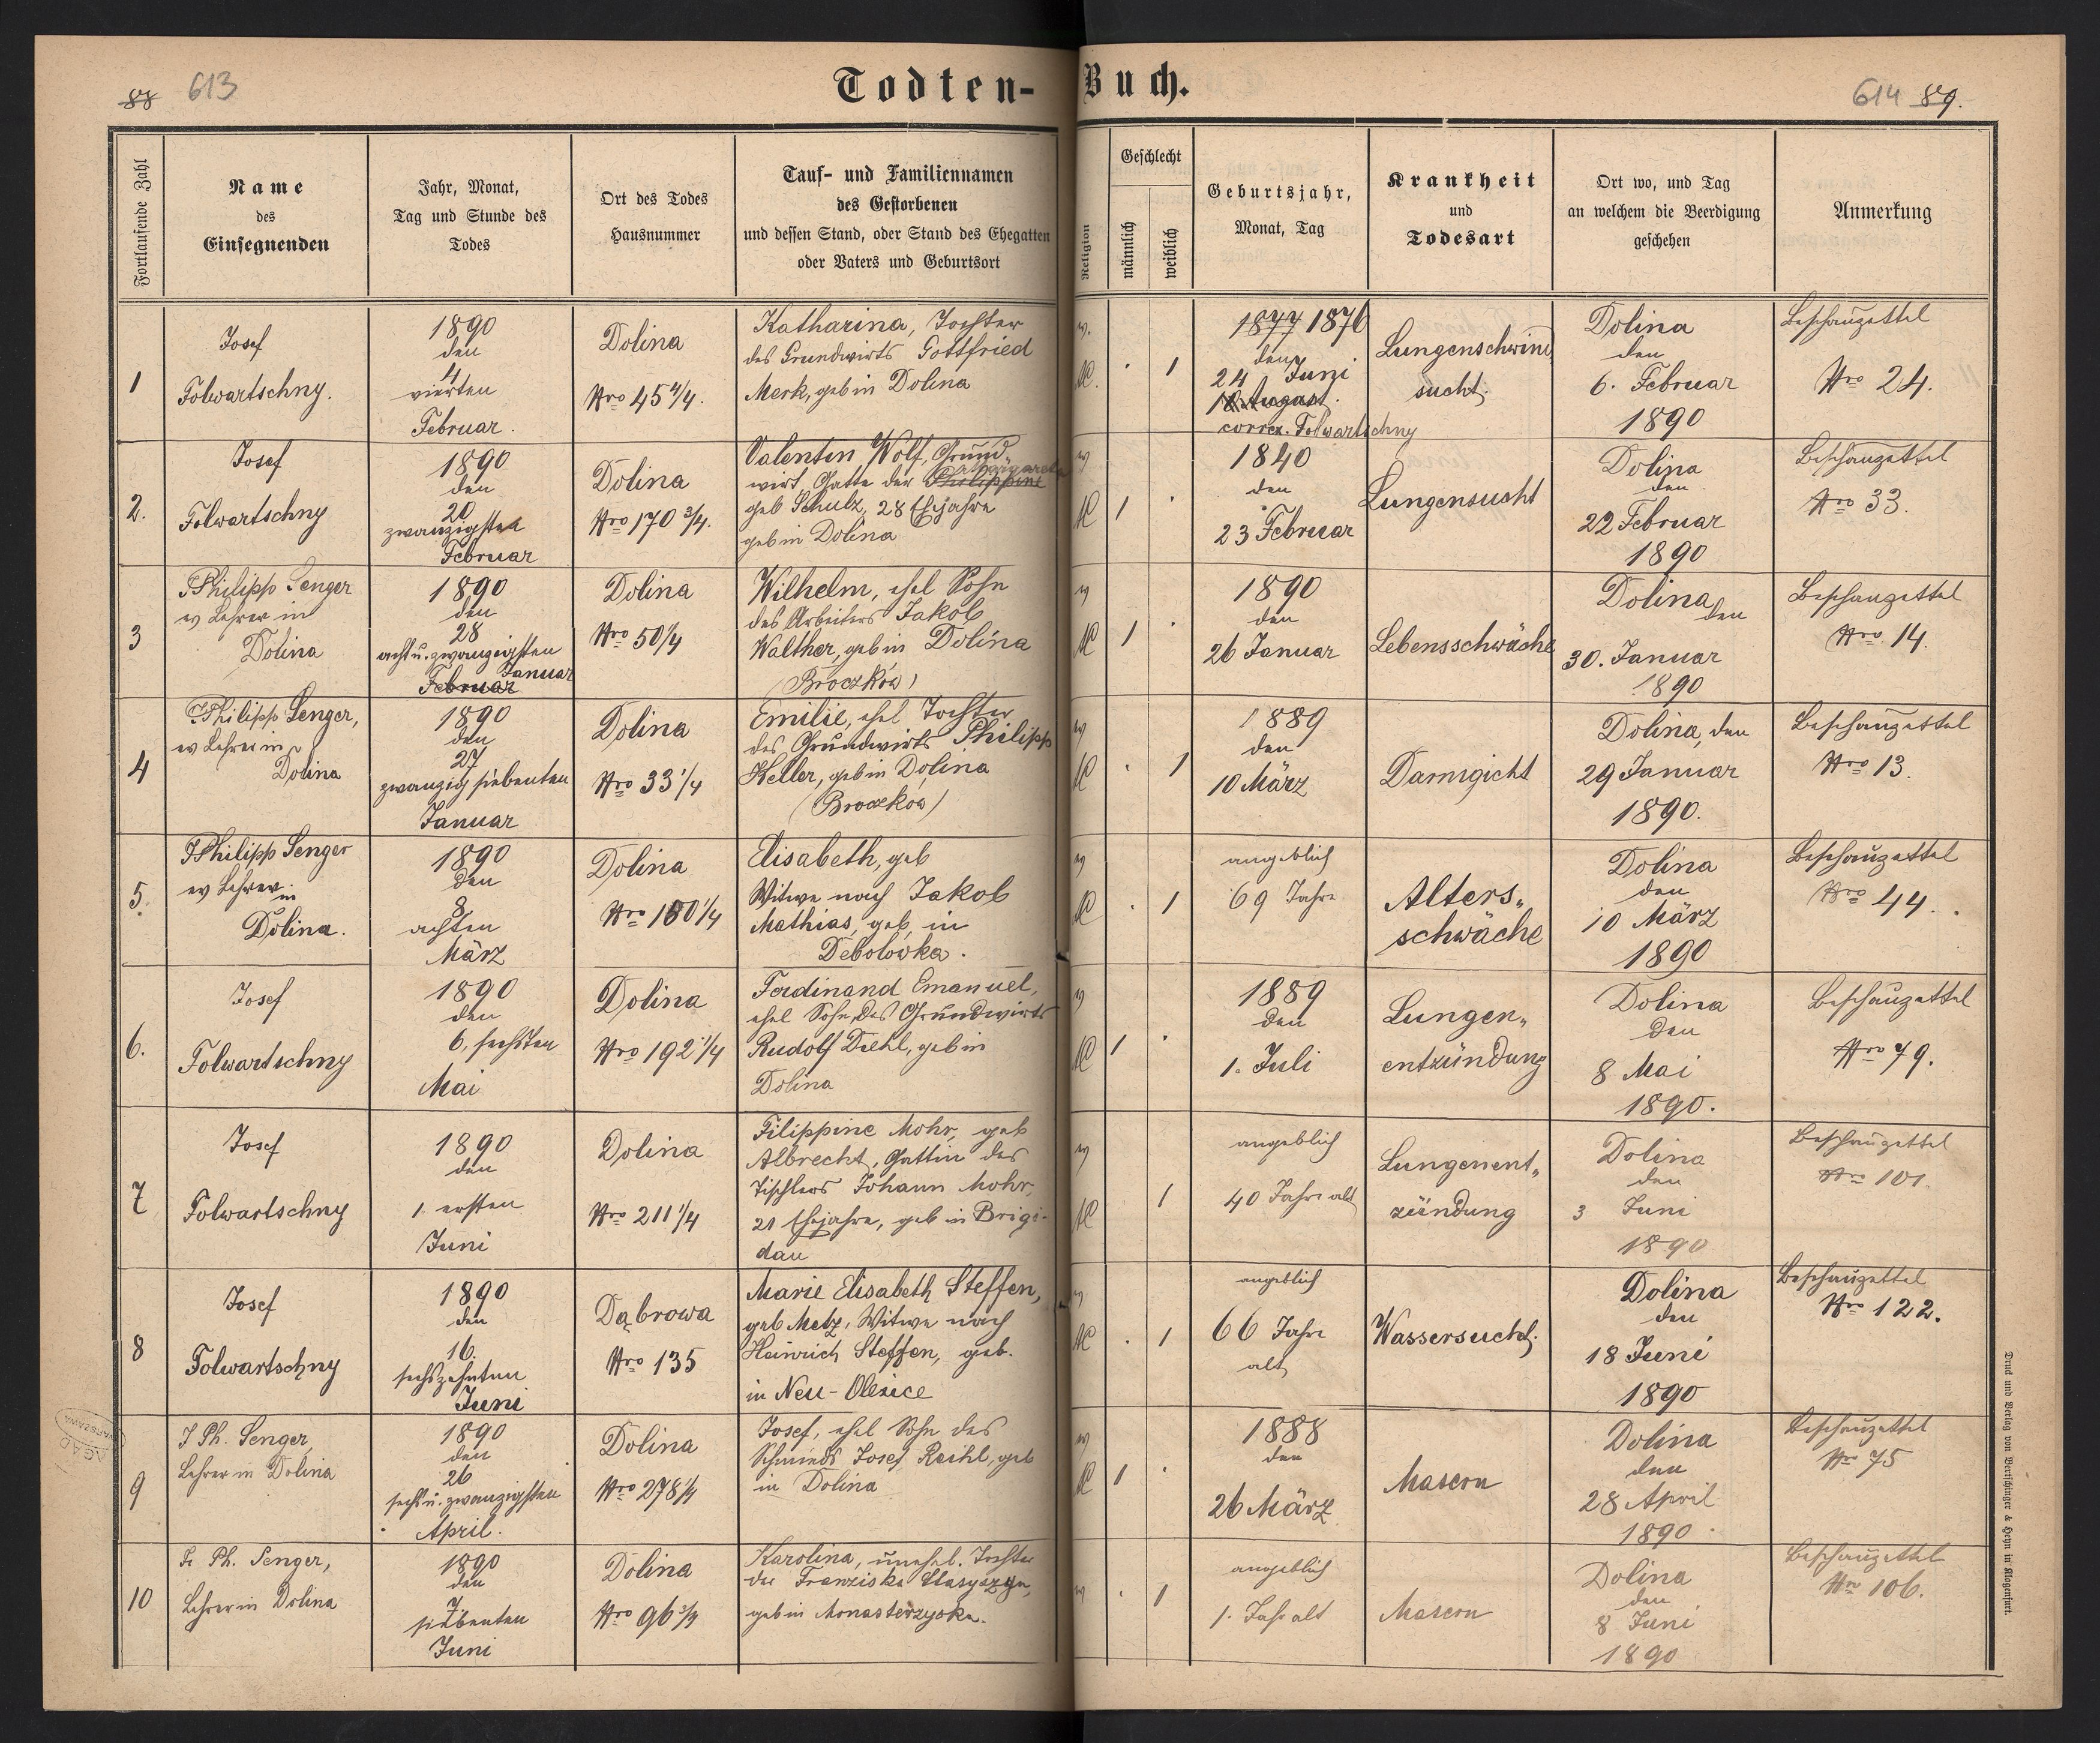 88 613
Todten-Buch.
614 89.
Fortlaufende Zahl
Name
des
Einsegnenden
Jahr, Monat,
Tag und Stunde des
Todes
Ort des Todes
Hausnummer
Tauf- und Familiennamen
des Gestorbenen
und dessen Stand, oder Stand des Ehegatten
oder Vaters und Geburtsort
Religion
Geschlecht
männlich
weiblich
Geburtsjahr,
Monat, Tag
Krankheit
und
Todesart
Ort wo, und Tag
an welchem die Beerdigung
geschehen
Anmerkung
1
Josef
Folwartschny.
1890
den
4
vierten
Februar.
Dolina
Nro 45 4/4.
Katharina, Tochter
des Grundwirts Gottfried
Merk, geb in Dolina
1
1877 1876
den
24 Juni
August.
correx. Folwartschny
Lungenschwind
sucht.
Dolina
den
6. Februar
1890
Beschauzettel
Nro 24.
2.
Josef
Folwartschny
1890
den
20
zwanzigsten
Februar
Dolina
Nro 170 3/4.
Valentin Wolf, Grund-
wirt, Gatte der Philippine
geb Schulz, 28 Ehejahre
geb in Dolina
1
1840
den
23 Februar
Lungensucht
Dolina
den
22 Februar
1890
Beschauzettel
Nro 33.
3
Philipp Senger
ev Lehrer in
Dolina
1890
den
28
acht u. zwanzigsten
Januar
Februar
Dolina
Nro 50 1/4
Wilhelm, ehel Sohn
des Arbeiters Jakob
Walther, geb in Dolina
(Broczków)
1
1890
den
26 Januar
Lebensschwäche
Dolina den
30. Januar
1890
Beschauzettel
Nro. 14.
4
Philipp Senger,
ev Lehrer in
Dolina
1890
den
27
zwanzig siebenten
Januar
Dolina
Nro 33 1/4
Emilie, ehel Tochter
des Grundwirts Philipp
Keller, geb in Dolina
(Broczków)
1
1889
den
10 März
Darmgicht
Dolina, den
29 Januar
1890.
Beschauzettel
Nro 13.
5.
Philipp Senger
ev Lehrer in
Dolina.
1890
den
8
achten
März
Dolina
Nro 180 1/4
Elisabeth, geb
Witwe nach Jakob
Mathias, geb, in
Debolówka.
1
angeblich
69 Jahre
Alters-
schwäche
Dolina
den
10 März
1890
Beschauzettel
Nro 44.
6.
Josef
Folwartschny
1890
den
6. sechsten
Mai
Dolina
Nro 192 1/4
Ferdinand Emanuel,
ehel Sohn des Grundwirts
Rudolf Diehl, geb in
Dolina
1
1889
den
1. Juli
Lungen-
entzündung
Dolina
den
8 Mai
1890.
Beschauzettel
Nro 79.
7
Josef
Folwartschny
1890
den
1. ersten
Juni
Dolina
Nro 211 1/4
Filippine Mohr, geb
Albrecht, Gattin des
Tischlers Johann Mohr,
21 Ehejahre, geb in Brigi-
dau
1
angeblich
40 Jahre alt
Lungenent-
zündung
Dolina
den
3 Juni
1890
Beschauzettel
Nro 101.
8
Josef
Folwartschny
1890
den
16.
sechszehnten
Juni
Dąbrowa
Nro 135
Marie Elisabeth Steffen,
geb Metz, Witwe nach
Heinrich Steffen, geb.
in Neu-Olexice
1
angeblich
66 Jahre
alt
Wassersucht.
Dolina
den
18 Juni
1890
Beschauzettel
Nro 122.
9
J Ph. Senger,
Lehrer in Dolina
1890
den
26
sechs u. zwanzigsten
April.
Dolina
Nro 278 1/4
Josef, ehel Sohn des
Schmieds Josef Reihl, geb
in Dolina
1
1888
den
26 März
Masern
Dolina
den
28 April
1890
Beschauzettel
Nro 75
10
F. Ph. Senger,
Lehrer in Dolina
1890
den
7
siebenten
Juni
Dolina
Nro 96 3/4
Karolina, unehel. Tochter
der Franziska
geb in Monasterzyska.
1
angeblich
1. Jahr alt
Masern
Dolina
den
8 Juni
1890
Beschauzettel
Nro 106.
Druck und Verlag von Bertschinger & Heyn in Klagenfurt.
AGAD
WARSZAWA